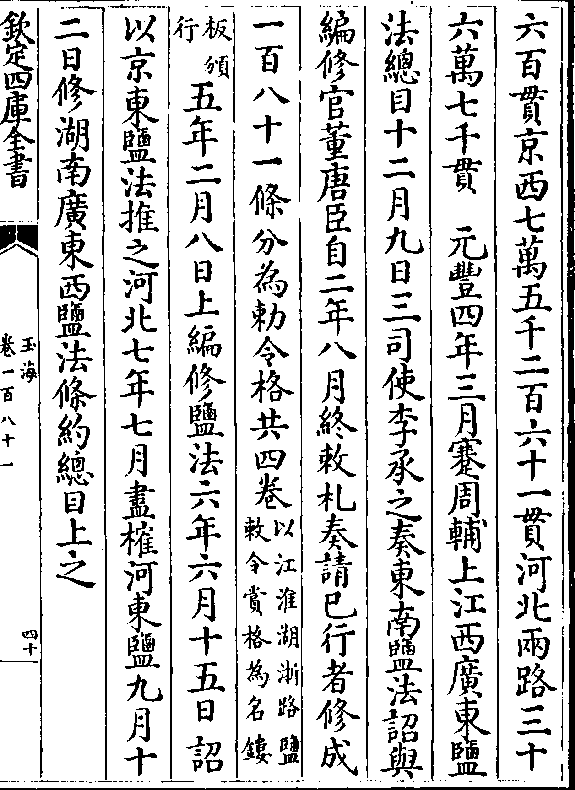 六百貫京西七萬五千二百六十一貫河北兩路三十
六萬七千貫　元豐四年三月蹇周輔上江西廣東鹽
法總目十二月九日三司使李承之奏東南鹽法詔與
編修官董唐臣自二年八月終敕札奏請已行者修成
一百八十一條分為勅令格共四卷以江淮湖淅路鹽
敕令賞格為名鏤
板頒
行
五年二月八日上編修鹽法六年六月十五日詔
以京東鹽法推之河北七年七月盡榷河東鹽九月十
二日修湖南廣東西鹽法條約總目上之
欽定四庫全書
玉海
卷一百八十一
四十